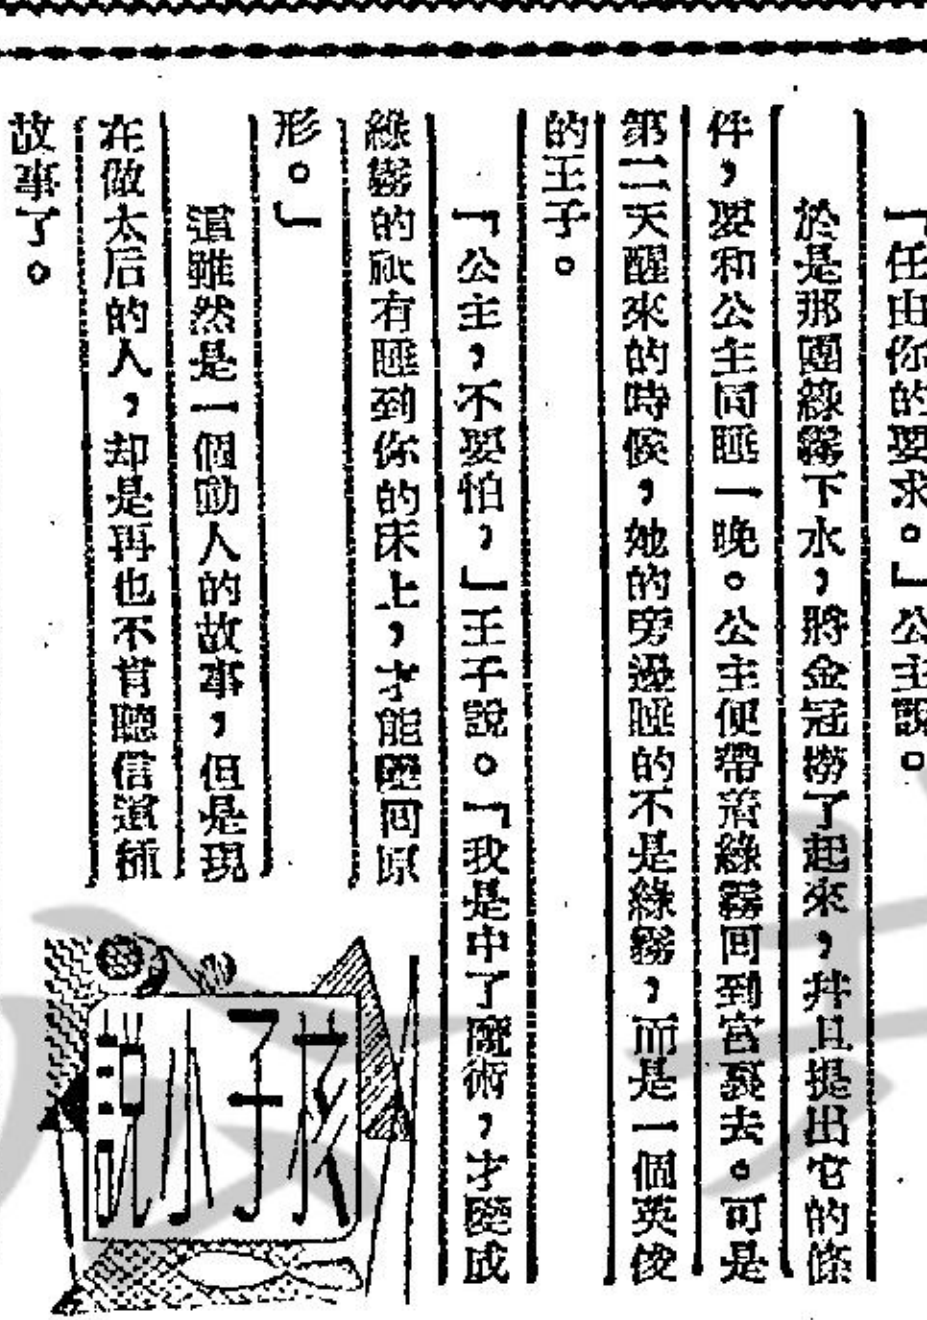 「任由你的要求。」公主說。
於是那團綠霧下水，將金冠撈了起來，幷且提出它的條
件，要和公主同睡一晚。公主便帶着綠霧回到宮裏去。可是
第二天醒來的時候，她的旁邊睡的不是綠霧，而是一個英俊
的王子。
「公主，不要怕，」王子說。「我是中了魔術，才變成
綠霧的祇有睡到你的床上，才能變回原
形。」
這雖然是一個動人的故事，但是現
在做太后的人，却是再也不肯聽信這種
故事了。
孩子小說